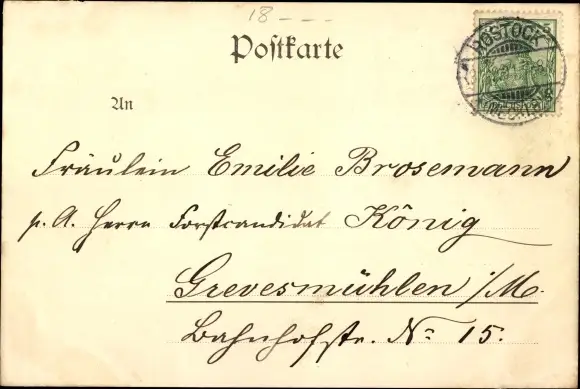 18---
Postkarte
ROSTOCK
5
An
(MECKLB)
Fräulein Emilie Brosemann
p. A. Herrn Forstcandidat König
Grevesmühlen i/M.
Bahnhofstr. No 15.